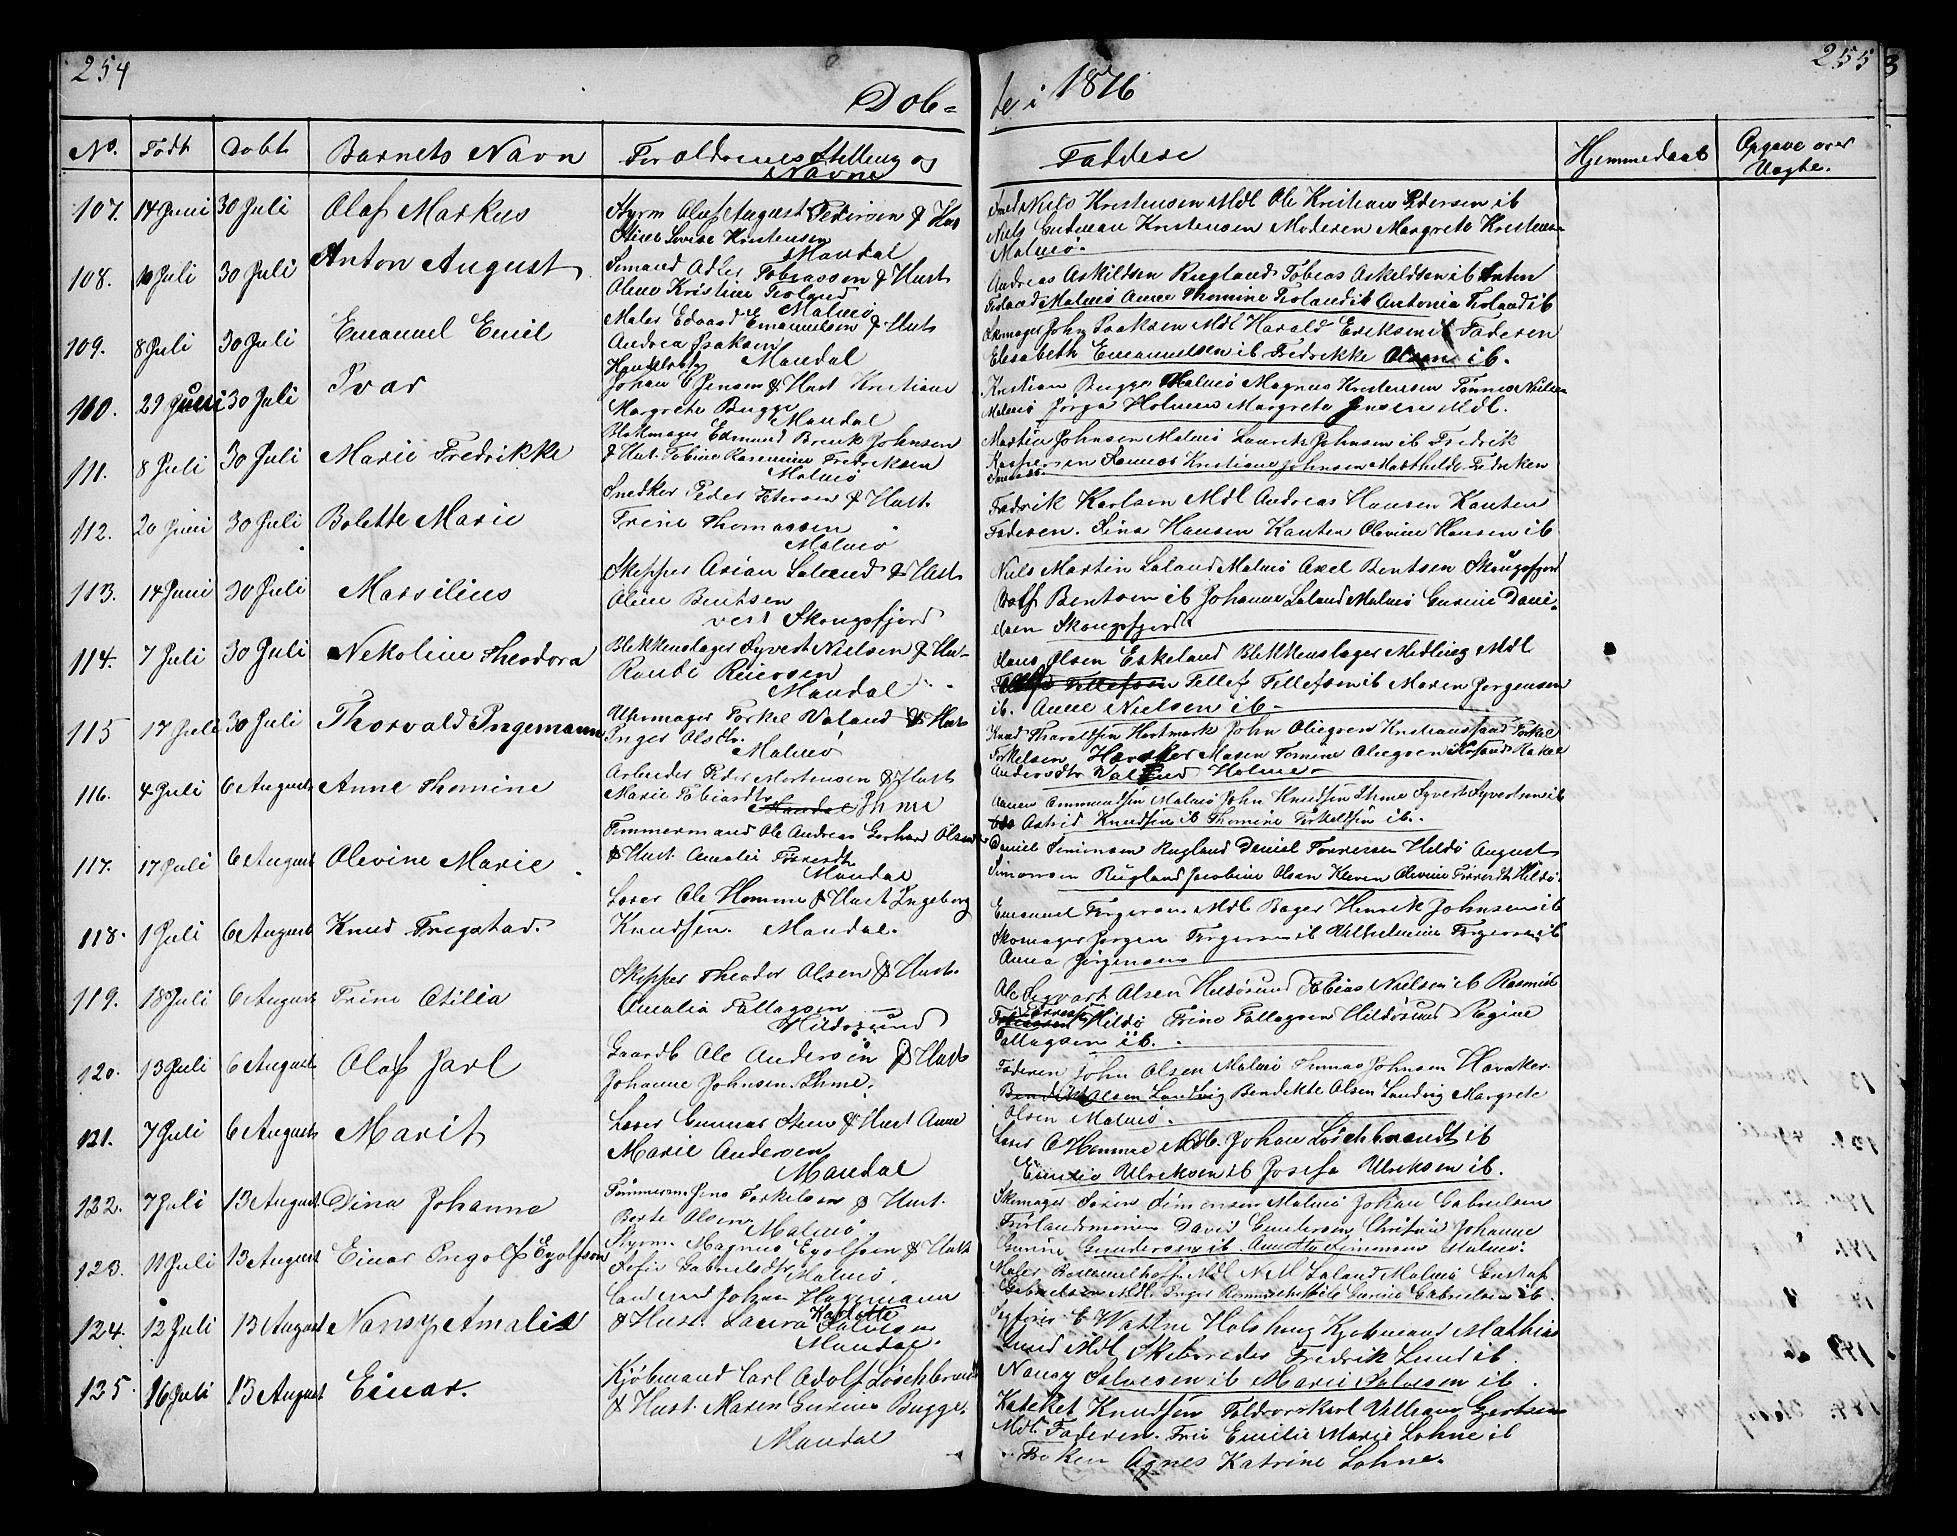 254
255
Dob=
te i 1876
No. Födt Dobt Barnets Navn Foreldrenes Stilling og Navne
Faddere Hjemmedaab Opgave over Uægte.
107. 14 Juni 30 Juli Olaf Markus
Styrm Oluf August Pedersen & Hust
Stine Lovise Kristensen
Mandal
Nils Kristensen Mdl Ole Kristian Pedersen ib
Niels Gudman Kristensen Moderen Margrete Kristensen
Malmö.
108. 10 Juli 30 Juli Anton August
Simand Adler Tobiassen & Hust
Oline Kristine Froland
Malmö
Andreas Askildsen Rugland Tobias Askildsen ib Anton
Froland Malmö Anne Thomine Froland ib Antonia Froland ib
109. 8 Juli 30 Juli Emanuel Emil
Maler Edvard Emanuelsen & Hust
Andrea Isaksen
Mandal
John Isaksen Mdl Harald Eriksen ib Faderen
Elisabeth Emanuelsen ib Fredrikke Olsen ib.
110. 29 Juni 30 Juli Ivar
Handelsbtj
Johan C Jensen & Hust Kristiane
Margrete Bugge
Mandal
Kristian Bugge Malmö Magnus Kristensen Tönnes Nielsen
Malmö Jörga Holmen Margrete Jensen Mdl.
111. 8 Juli 30 Juli Marie Fredrikke
Blokmager Edmund Brink Johnsen
& Hust. Tobine Rasmine Fredriksen
Malmö
Martin Johnsen Malmö Laurits Johnsen ib Fredrik
Kaspersen Sannes Kristiane Johnsen Mathilde Fredriksen
Sannes
112. 20 Juni 30 Juli Bolette Marie
Snedker Peder Petersen & Hust.
Trine Thomassen
Malmö
Fredrik Karlsen Mdl Andreas Hansen Kanten
Faderen. Sina Hansen Kanten Olevine Hansen ib
113. 14 Juni 30 Juli Marsilius
Skipper Asian Laland & Hust
Oline Bentsen
vest Skougsfjord
Niels Martin Laland Malmö Axel Bentsen Skougsfjord
Rolf Bentsen ib Johanne Laland Malmö Gurine Dani-
elsen Skougsfjord
114. 7 Juli 30 Juli Nekoline Theodora
Blikkenslager Syvert Nielsen & Hust
Randi Reiersen
Mandal
Hans Olsen Eskeland Blikkenslager Midling Mdl
Tellefsen Tellef Tellefsen ib Maren Jorgensen
ib. Anne Nielsen ib
115 17 Juli 30 Juli Thorvald Ingemann
Uhrmager Torkel Valand & Hust
Inger Olsdtr.
Malmö
Knud Tharaldsen Hartmark John Oliegren Kristianssand Torkel
Torkelsen Haraker Maren Tomine Oliegren Krsand Hakel
Andersdtr Valand Holme
116. 4 Juli 6 August Anne Thomine
Arbeider Peder Mortensen & Hust
Marie Tobiasdtr
Mandal Ihme
Ommundsen Malmö John Knudsen Ihme Syvert Syvertsen ib
Astrid Knudsen ib Thomine Torkeldsen ib.
117. 17 Juli 6 August Olevine Marie
Timmermand Ole Andreas Gerhard Olsen
& Hust. Amalie Torresdtr
Mandal
Daniel Simonsen Rugland Daniel Torresen Hildö August
Simonsen Rugland Jacobine Olsen Kleven Olevine Torresdtr Hildö.
118. 1 Juli 6 August Knud Tregstad.
Loser Ole Homme & Hust Ingeborg
Knudsen. Mandal.
Emanuel Torgersen Mdl Bager Henrik Johnsen ib
Skomager Jorgen Torgersen ib Vilhelmine Torgersen ib
Anna Jörgensen
119. 18 Juli 6 August Trine Otilia
Skipper Theodor Olsen & Hust.
Amalia Tallagsen
Hildosund
Ole Sigvart Olsen Hildösund Tobias Nielsen ib Rasmus
Torresen Hildö Trine Tallagsen Hildösund Regine
Tallagsen ib.
120. 13 Juli 6 August Olaf Jarl
Gaardb Ole Andersen & Hust
Johanne Johnsen. Ihme.
Faderen John Olsen Malmö Thomas Johnsen Haraker.
Olsen Landvig Bendikte Olsen Landvig Margrete
Olsen Malmö.
121. 7 Juli 6 August Marit
Loser Gunnar Steen & Hust Anne
Marie Andersen
Mandal
Loser O Homme Mdl. Johan Löschbrandt ib
Emilie Ulriksen ib Josefa Ulriksen ib.
122. 7 Juli 13 August Dina Johanne
Tömmerm. Jens Torkelsen & Hust.
Berte Olsen
Malmö
Skomager Sören Simonsen Malmö Johan Gabrielsen
David Gundersen Christine Johanne
Gurine Gundersen ib. Anette Simonsen Malmö.
123. 11 Juli 13 August Einar Ingolf Eyolfson
Styrm Magnus Eyolfsen & Hust
Sofie Gabrielsdtr
Malmö.
Maler Mdl Nill Laland Malmö Gustaf
Gabrielsen Mdl Inger Gurine Gabrielsen ib.
124. 12 Juli 13 August Nansy Amalia
Johan Hagemann
& Hust. Laura Karlotte Salvesen
Mandal.
E Wattne Helsborg Kjobmand Mathias
Lund Mdl Skibsreder Fredrik Lund ib.
Nansy Salvesen ib Marie Salvesen ib.
125. 16 Juli 13 August Einar.
Kjöbmand Carl Adolf Löschbrandt
& Hust. Maren Gurine Bugge.
Mandal
Kateket Knudsen Toldvorskarl Villiam Gjertsen
Mdl. Faderen. Frü Emilie Marie Lohne ib
Froken Agnes Katrine Lohne.